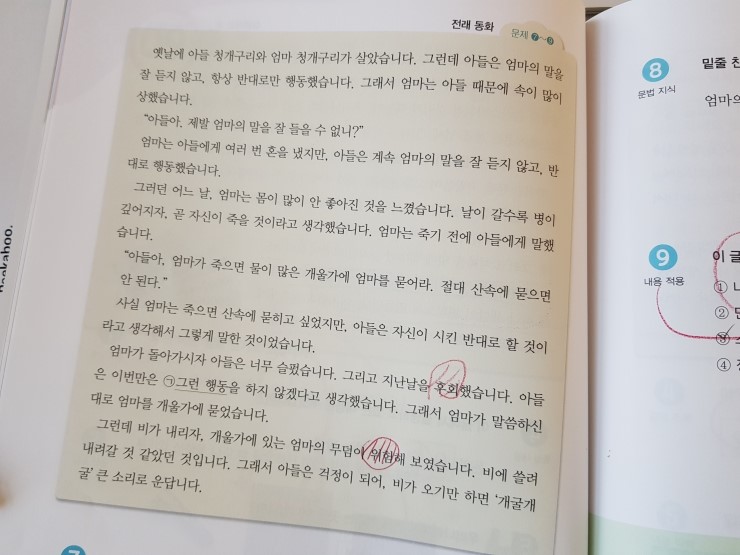 전래 동화
문제 7~9
옛날에 아들 청개구리와 엄마 청개구리가 살았습니다. 그런데 아들은 엄마의 말을
잘 듣지 않고, 항상 반대로만 행동했습니다. 그래서 엄마는 아들 때문에 속이 많이
상했습니다.
“아들아. 제발 엄마의 말을 잘 들을 수 없니?”
엄마는 아들에게 여러 번 혼을 냈지만, 아들은 계속 엄마의 말을 잘 듣지 않고, 반
대로 행동했습니다.
그러던 어느 날, 엄마는 몸이 많이 안 좋아진 것을 느꼈습니다. 날이 갈수록 병이
깊어지자, 곧 자신이 죽을 것이라고 생각했습니다. 엄마는 죽기 전에 아들에게 말했
습니다.
“아들아, 엄마가 죽으면 물이 많은 개울가에 엄마를 묻어라. 절대 산속에 묻으면
안 된다.”
사실 엄마는 죽으면 산속에 묻히고 싶었지만, 아들은 자신이 시킨 반대로 할 것이
라고 생각해서 그렇게 말한 것이었습니다.
엄마가 돌아가시자 아들은 너무 슬펐습니다. 그리고 지난날을 후회했습니다. 아들
은 이번만은 ㉠그런 행동을 하지 않겠다고 생각했습니다. 그래서 엄마가 말씀하신
대로 엄마를 개울가에 묻었습니다.
그런데 비가 내리자, 개울가에 있는 엄마의 무덤이 위험해 보였습니다. 비에 쓸려
내려갈 것 같았던 것입니다. 그래서 아들은 걱정이 되어, 비가 오기만 하면 ‘개굴개
굴’ 큰 소리로 운답니다.
8
문법 지식
밑줄 친
엄마의
9
내용 적용
이 글
①
②
④